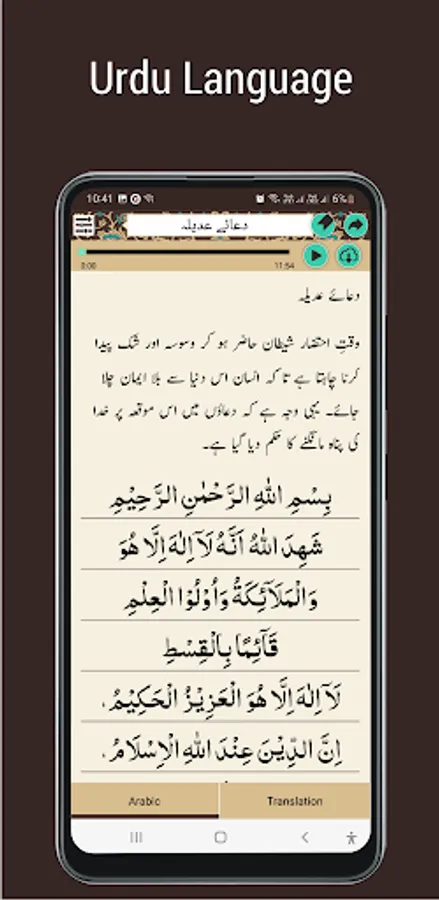 Urdu Language
10:41
6%
دعائے عدیلہ
0:00
11:54
دعائے عدیلہ
وقتِ احتضار شیطان حاضر ہو کر وسوسہ اور شک پیدا
کرنا چاہتا ہے تا کہ انسان اس دنیا سے بلا ایمان چلا
جائے۔ یہی وجہ ہے کہ دعاؤں میں اس موقعہ پر خدا
کی پناہ مانگنے کا حکم دیا گیا ہے۔
بِسْمِ اللّٰهِ الرَّحْمٰنِ الرَّحِيْمِ
شَهِدَ اللّٰهُ اَنَّهٗ لَاۤ اِلٰهَ اِلَّا هُوَ
وَالْمَلَآئِكَةُ وَاُوْلُوْا الْعِلْمِ
قَآئِمًا بِالْقِسْطِ
لَاۤ اِلٰهَ اِلَّا هُوَ الْعَزِيْزُ الْحَكِيْمُ،
اِنَّ الدِّيْنَ عِنْدَ اللّٰهِ الْاِسْلَامُ،
Arabic
Translation